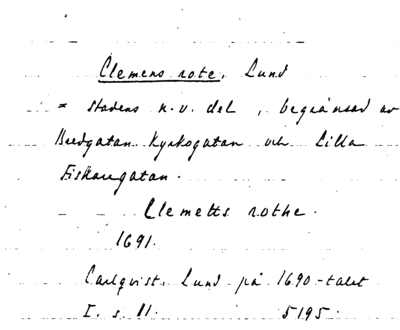 Clemens rote, Lund
= stadens n.v. del, begränsad av
Bredgatan Kyrkogatan och Lilla
Fiskaregatan.
Clemetts rothe.
1691.
Carlqvist, Lund på 1690-talet
I. s. 11. 5195.